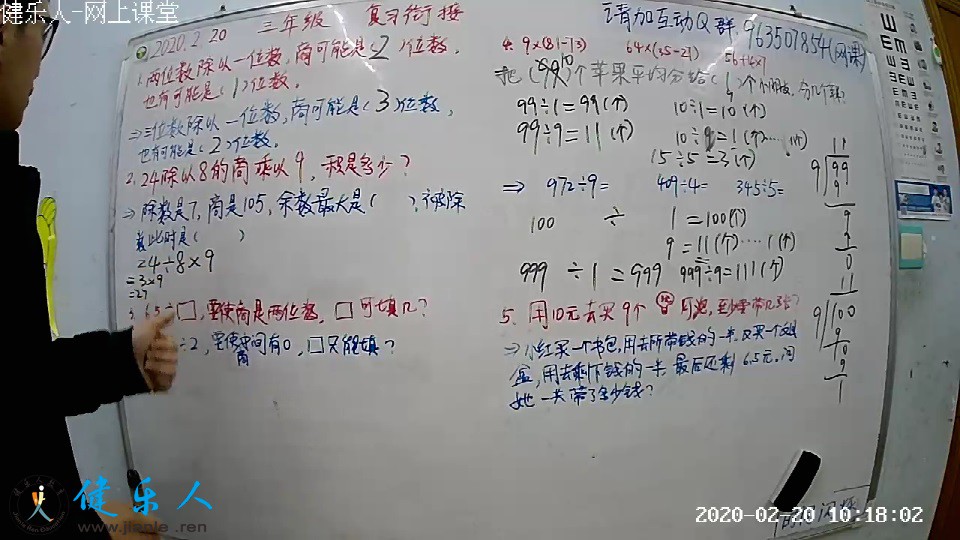 健乐人-网上课堂
2020.2.20
三年级 复习衔接
请加互动Q群 963507854(网课)
1.两位数除以一位数,商可能是(2)位数,
也有可能是(1)位数。
⇒三位数除以一位数,商可能是(3)位数,
也可能是(2)位数。
2.24除以8的商乘以9,积是多少?
⇒除数是7,商是105,余数最大是( ),被除
数此时是( )
24÷8×9
=3×9
=27
□,要使商是两位数,□可填几?
÷2,要使中间有0,□只能填?
商
4. 9×(81-13)
64×(35-27)
99÷1=99(个)
10÷1=10(个)
99÷9=11(个)
15÷5=3(个)
⇒ 972÷9= 409÷4= 345÷5=
100 ÷ 1=100(个)
9=11(个)····1(个)
999 ÷1=999 999÷9=111(个)
5. 用10元去买9个
⇒小红买一个书包,用去所带钱的一半,又买一个文具
盒,用去剩下钱的一半,最后还剩6.5元。问
她一共带了多少钱?
11
9 99
9
9
0
11
9 100
9
10
9
1
健乐人
www.jianle.ren
2020-02-20 10:18:02